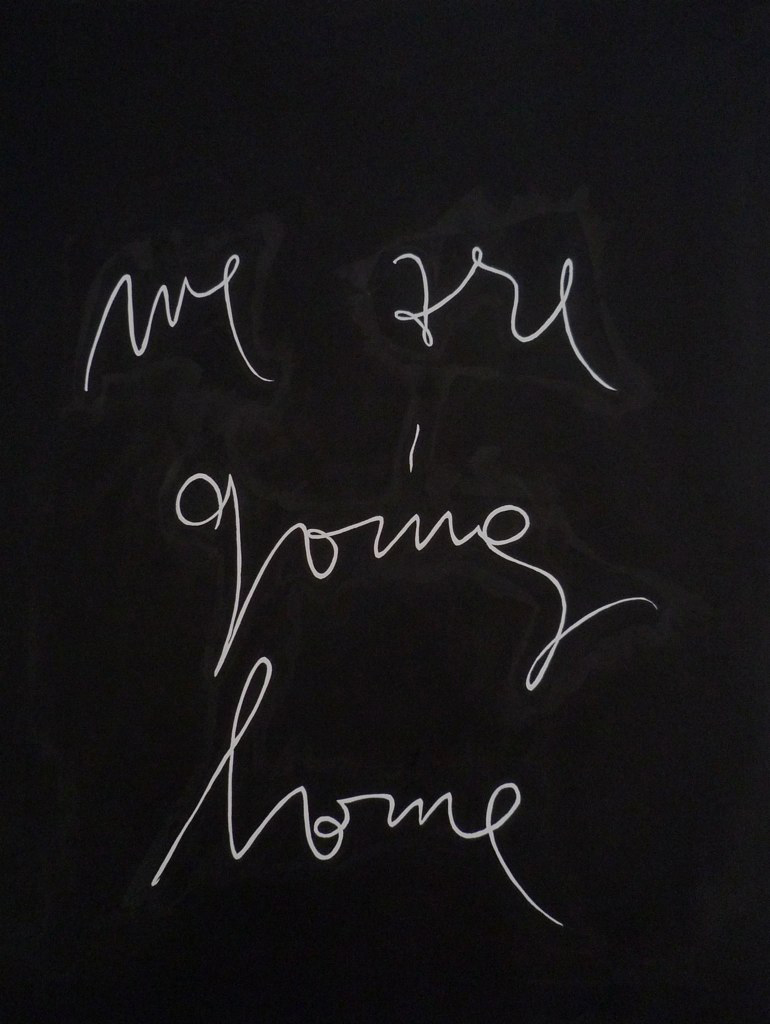 we are
going
home